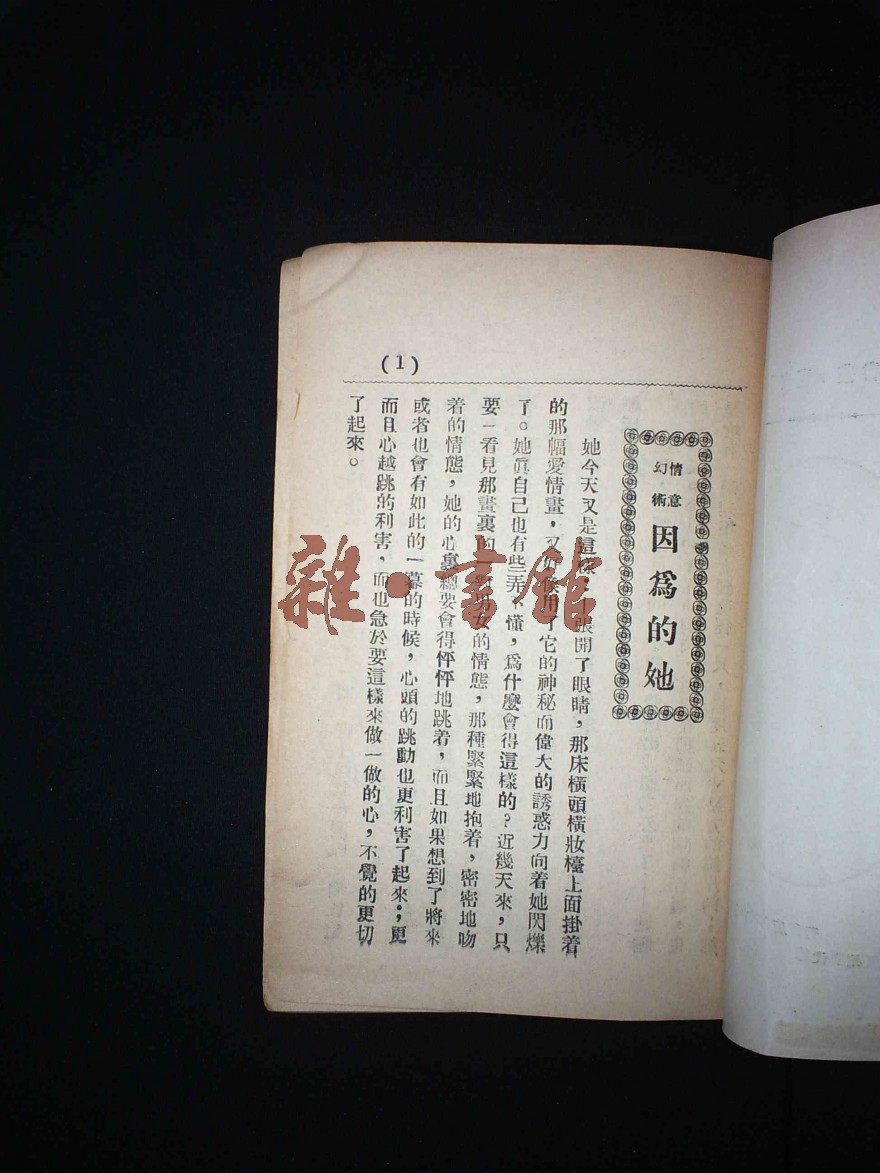 (1)
情意
幻術
因爲的她
她今天又是這樣，一張開了眼睛，那床橫頭橫妝檯上面掛着
的那幅愛情畫，又好像用了它的神秘而偉大的誘惑力向着她閃爍
了。她眞自己也有些弄不懂，爲什麼會得這樣的？近幾天來，只
要一看見那畫裏的一對男女的情態，那種緊緊地抱着，密密地吻
着的情態，她的心裏總要會得怦怦地跳着，而且如果想到了將來
或者也會有如此的一幕的時候，心頭的跳動也更利害了起來。；更
而且心越跳的利害，而也急於要這樣來做一做的心，不覺的更切
了起來。
雜·書館